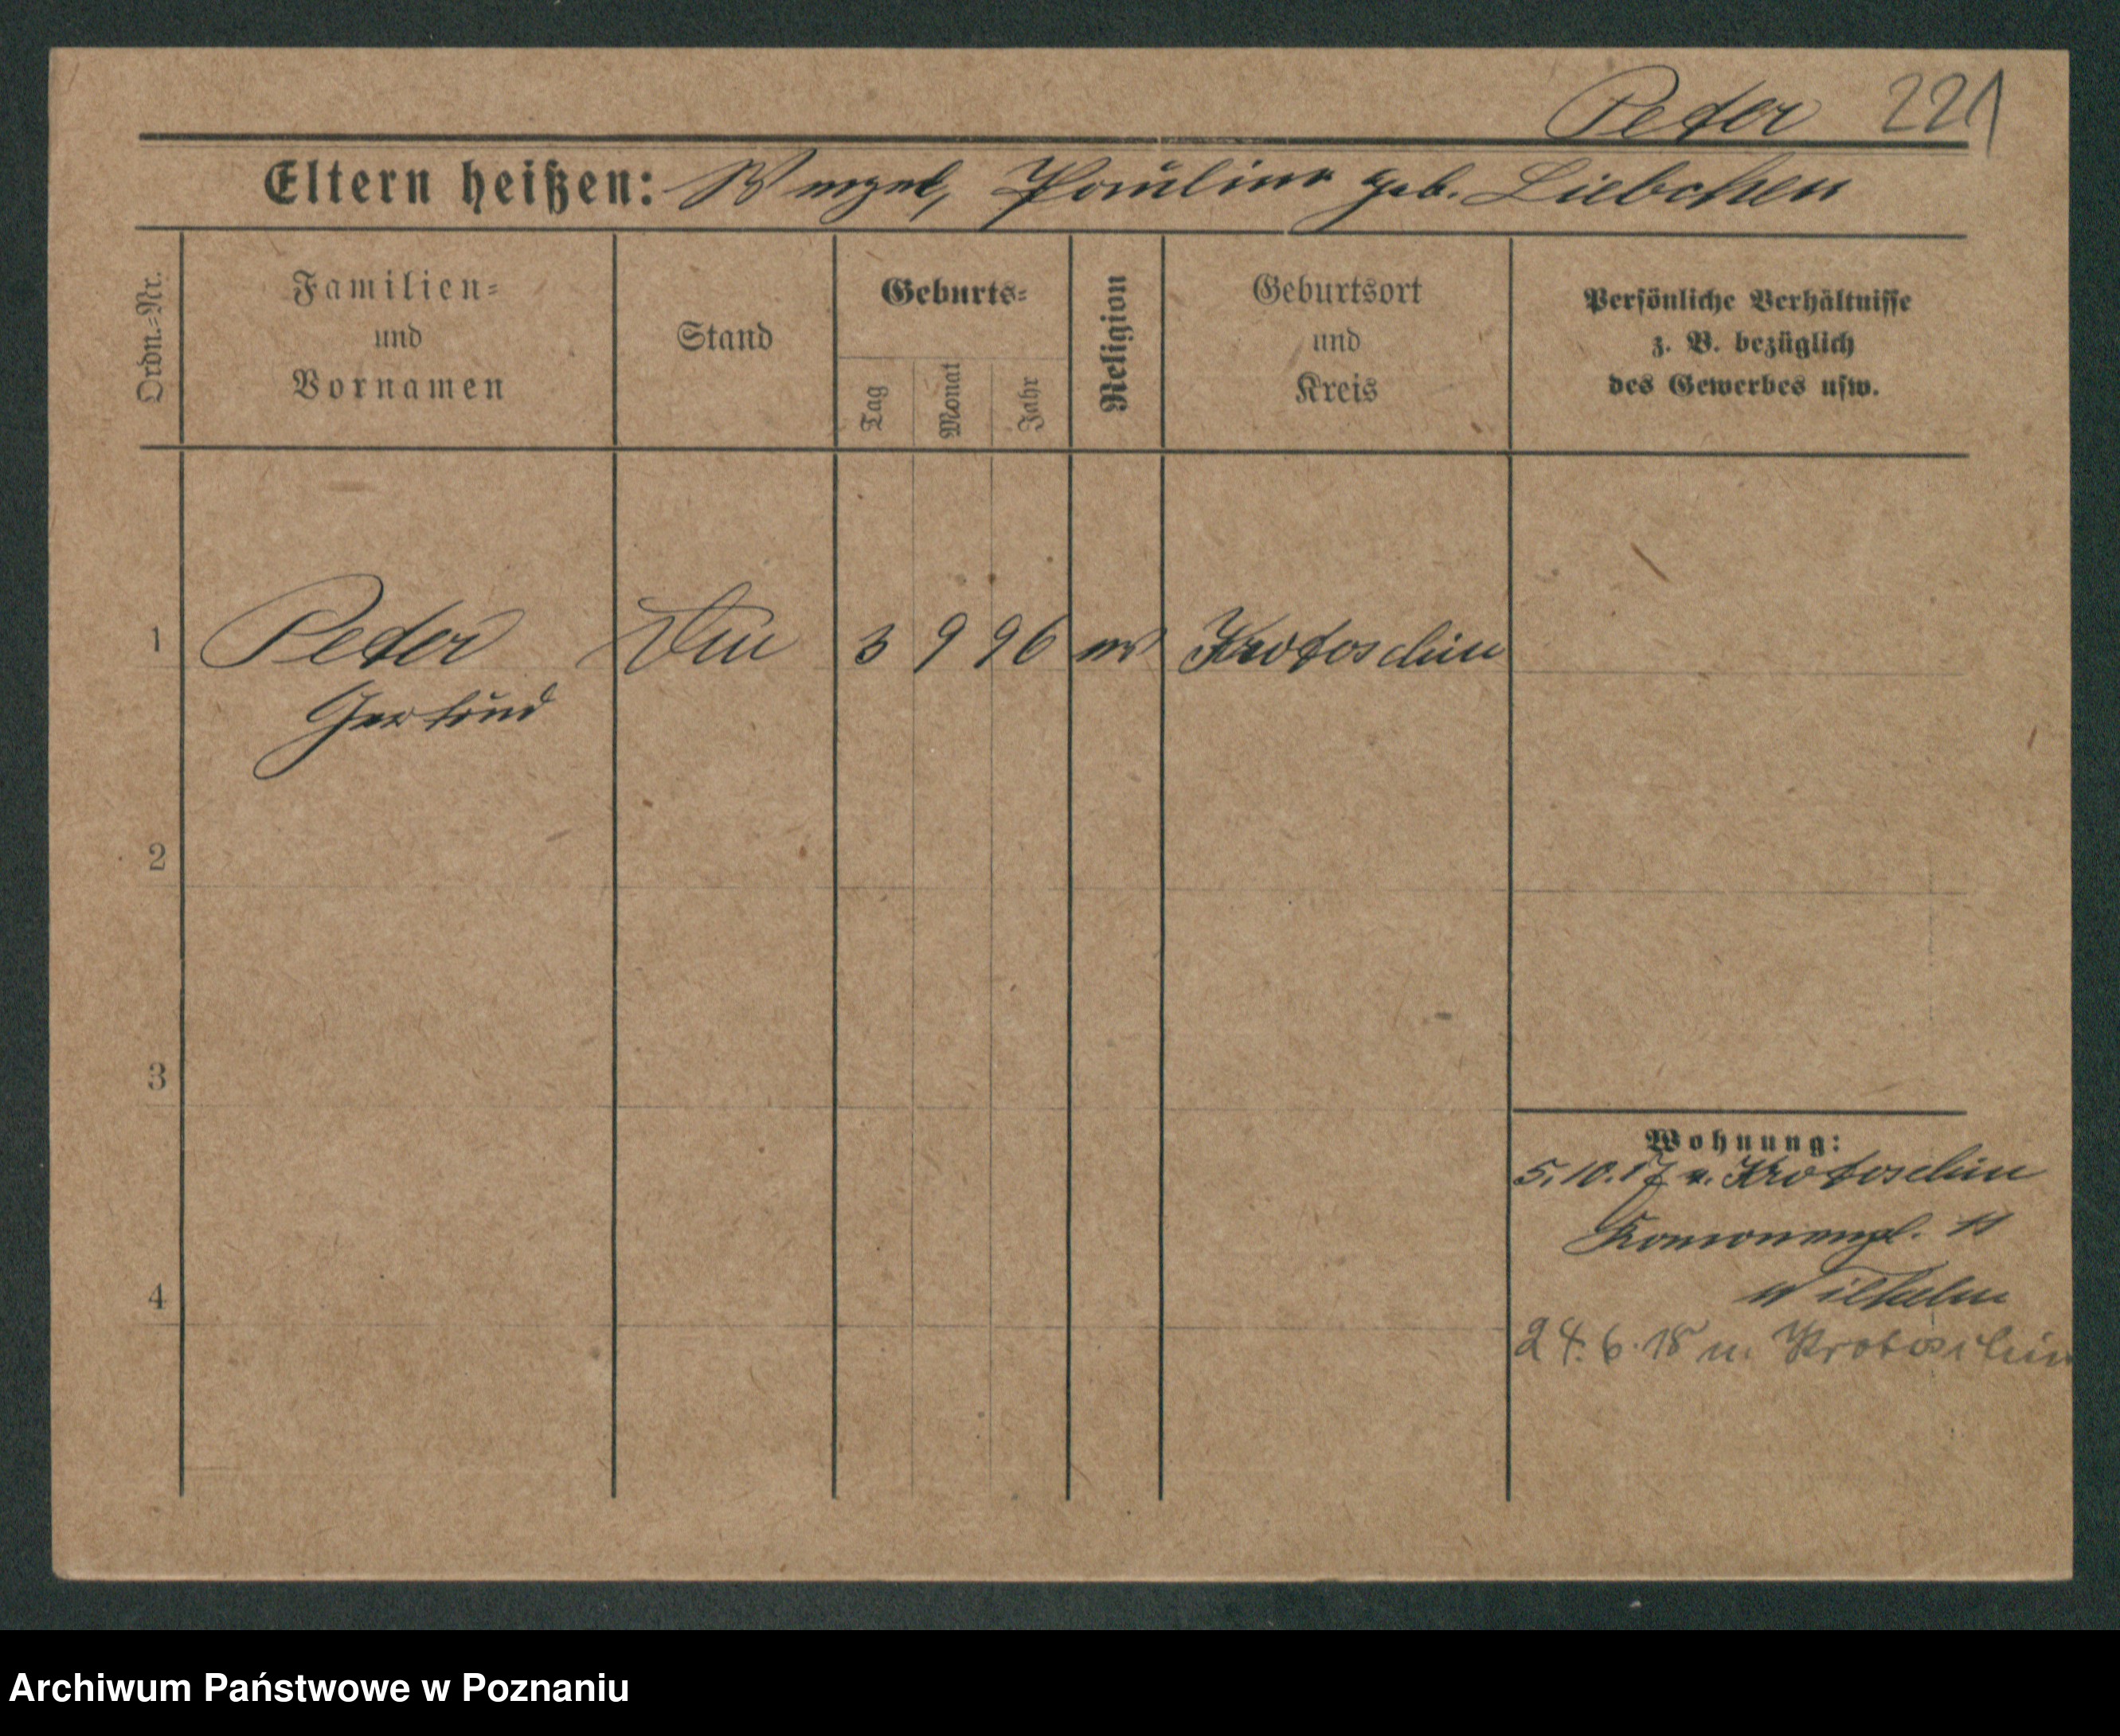 Peter 221
Eltern heißen: Wenzel, Pauline geb. Liebchen
Ordn.-Nr.
Familien-
und
Vornamen
Stand
Geburts-
Tag
Monat
Jahr
Religion
Geburtsort
und
Kreis
Persönliche Verhältnisse
z. B. bezüglich
des Gewerbes usw.
1 Peter 3 9 96 Krotoschin
Gertrud
2
3
4
Wohnung:
5.10.17 v. Krotoschin
11
Wilhelm
24.6.18 n. Krotoschin
Archiwum Państwowe w Poznaniu